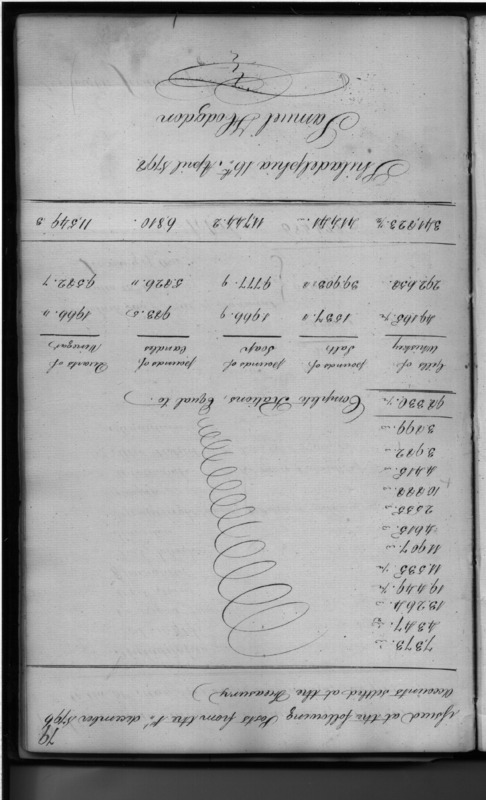 79
issued at the following Posts from the 1st december 1796
Accounts settled at the Treasury)
7,373.
4247.
13264
19,449. ½
11,535. ½
11907
4615
2555
4415
3972
3199
98330. ½ Complete Rations, Equal to.)
Gills of Whiskey
pounds of Salt
pounds of Soap
pounds of Candles
Quarts of Vinegar
49165. ½ 1537. " 1966. 9 983. 5 1966. "
292658. 39903. " 9777. 9 5826. " 9582. 7
341,823. ½ 41441 11,744. 2 6810. 11,549. 3
Philadelphia 16th April 1798
Samuel Hodgdon